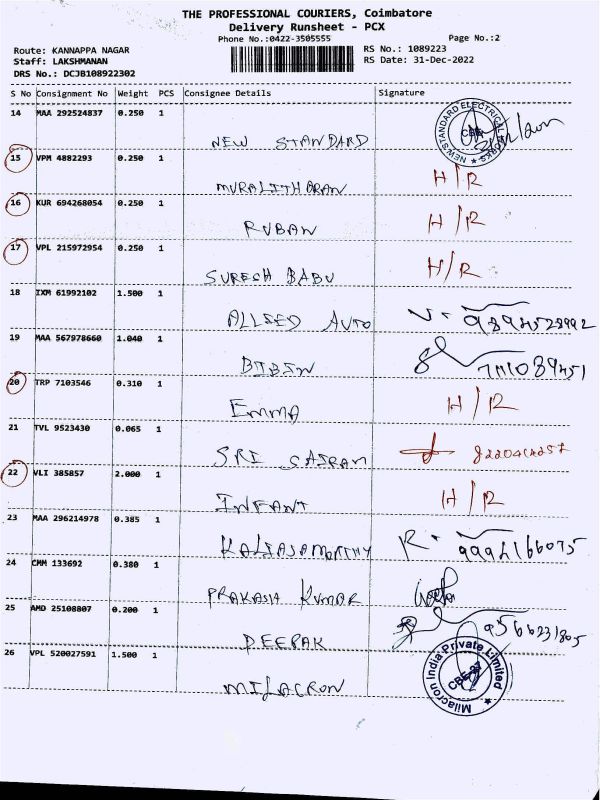 THE PROFESSIONAL COURIERS, Coimbatore
Delivery Runsheet - PCX
Phone No.:0422-3505555
Page No.:2
Route: KANNAPPA NAGAR
RS No.: 1089223
Staff: LAKSHMANAN
RS Date: 31-Dec-2022
DRS No.: DCJB108922302
S No Consignment No Weight PCS Consignee Details Signature
14 MAA 292524837 0.250 1
NEW STANDARD
NEW STANDARD ELECTRICAL WORKS
15 VPM 4882293 0.250 1
MURALITHARAN H/R
16 KUR 694268054 0.250 1
RUBAN H/R
17 VPL 215972954 0.250 1
SURESH BABU H/R
18 IXM 61992102 1.500 1
ALLIED AUTO 9894528992
19 MAA 567978660 1.040 1
BIBIN
20 TRP 7103546 0.310 1
EMMA H/R
21 TVL 9523430 0.065 1
SRI SAIRAM
22 VLI 385857 2.000 1
INFANT H/R
23 MAA 296214978 0.385 1
KALIASAMORTHY
24 CMM 133692 0.380 1
PRAKASH KUMAR
25 AMD 25108807 0.200 1
DEEPAK 9566231805
26 VPL 520027591 1.500 1
MILACRON
Milacron India Private Limited